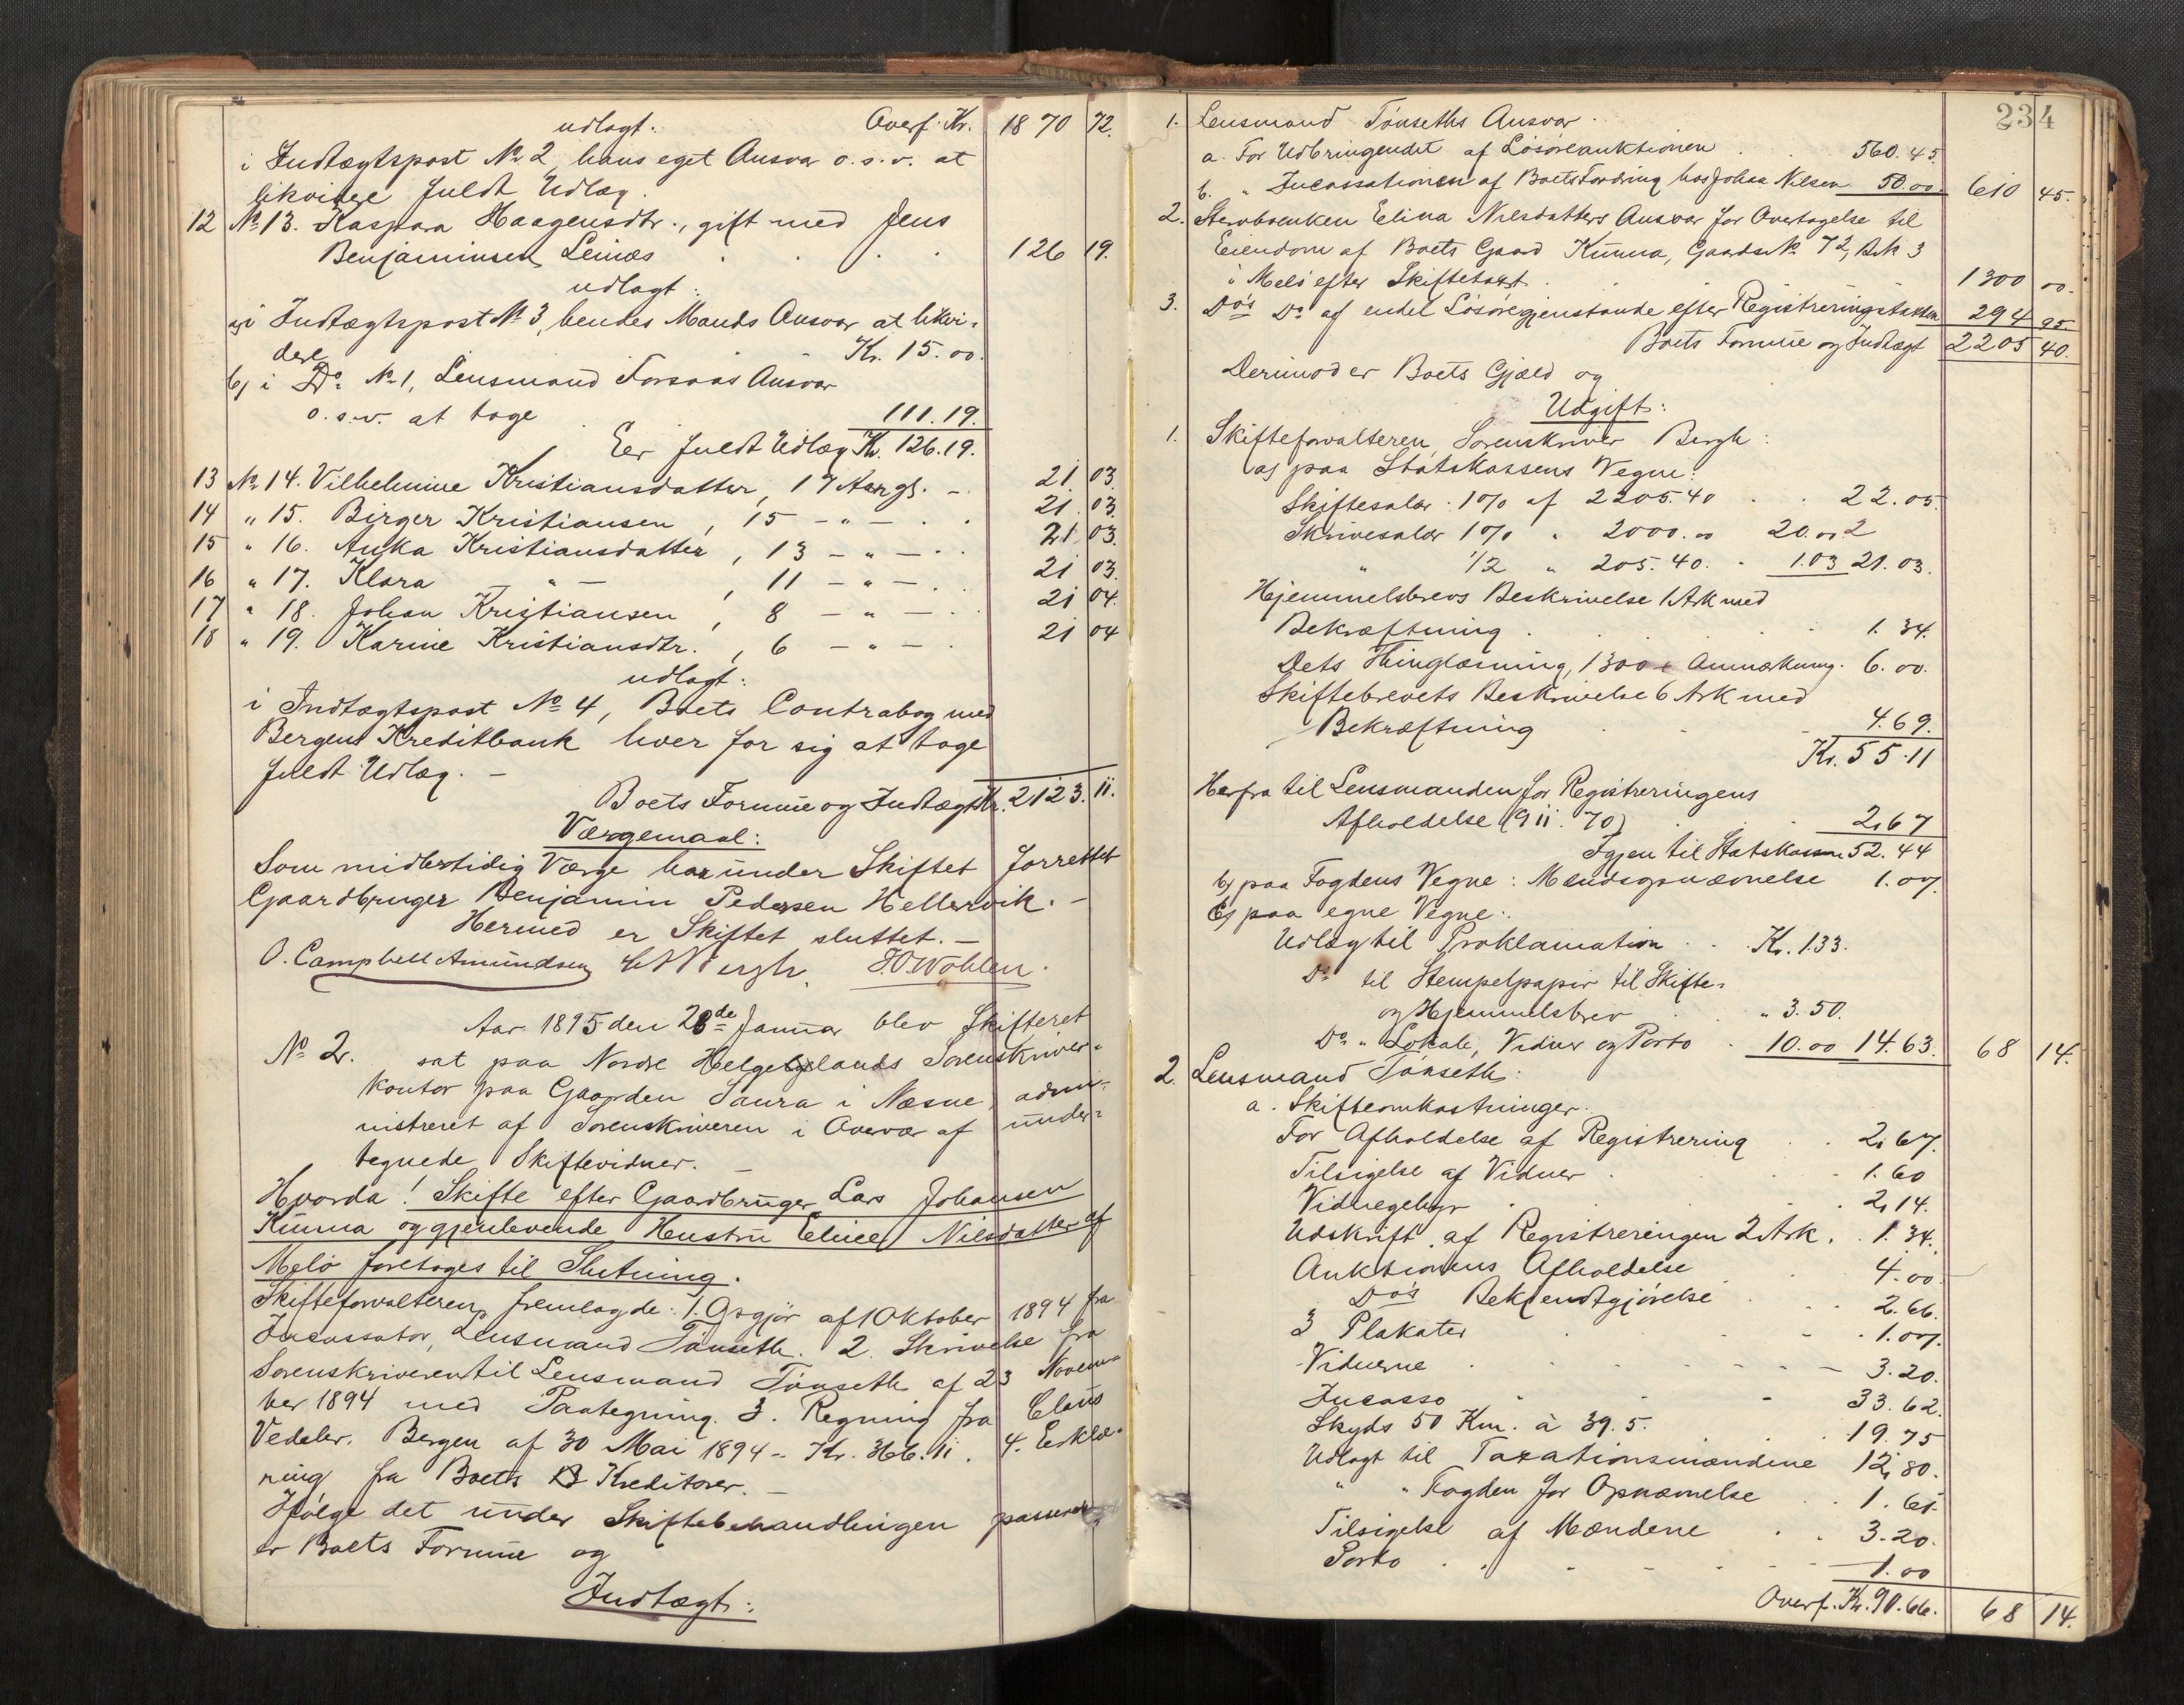 udlagt: Overf. Kr. 1870 72.
i Indtægtspost No 2, hans eget Ansvar o.s.v. at
likvidere fuldt Udlæg.
12 No 13. Kaspara Haagensdtr., gift med Jens
Benjaminsen Leinæs . . . . 126 19.
udlagt:
a) i Indtægtspost No 3, hendes Mands Ansvar at likvi-
dere Kr. 15.00.
b) i Do No 1, Lensmand Forsaas Ansvar
o.s.v. at tage 111.19.
Eer fuldt Udlæg Kr. 126.19.
13 No 14. Vilhelmine Kristiansdatter, 17 Aar gl. - 21 03.
14 " 15. Birger Kristiansen, 15 - " - . . 21 03.
15 " 16. Anka Kristiansdatter, 13 - " - . . 21 03.
16 " 17. Klara " - , 11 - " - . 21 03.
17 " 18. Johan Kristiansen, 8 - " - . . 21 04.
18 " 19. Karine Kristiansdtr. , 6 - " - . 21 04
udlagt:
i Indtægtspost No 4, Boets Contrabog med
Bergens Kreditbank hver for sig at tage
fuldt Udlæg. -
Boets Formue og Indtægt Kr. 2123. 11.
Værgemaal:
Som midlertidig Værge har under Skiftet forrettet
Gaardbruger Benjamin Pedersen Hellervik. -
Hermed er Skiftet sluttet. -
O. Campbell Amundsen Bergh. Wohlen.
Aar 1895 den 28de Januar blev Skifteret
No 2. sat paa Nordre Helgelands Sorenskriver-
kontor paa Gaarden Saura i Næsne, admi-
nistreret af Sorenskriveren i Overvær af under-
tegnede Skiftevidner. -
Hvorda! Skifte efter Gaardbruger Lars Johansen
Kunna og gjenlevende Hustru Eline Nilsdatter af
Melö foretages til Slutning.
Skifteforvalteren fremlagde: 1. Opgjör af 1 Oktober 1894 fra
Incassator, Lensmand Tönseth. 2. Skrivelse fra
Sorenskriveren til Lensmand Tönseth af 23 Novem-
ber 1894 med Paategning. 3. Regning fra Claus
Vedeler, Bergen af 30 Mai 1894 - Kr. 366.11. 4. Erklæ-
ring fra Boets Kreditorer. -
Ifölge det under Skiftebehandlingen passerede
er Boets Formue og
Indtægt:
234
1. Lensmand Tönseths Ansvar
a. For Udbringendet af Lösöreauktionen . . 560.45.
b. " Incassationen af Boets Fordring hos Johan Nilsen 50.00. 610 45.
2. Stervboenken Elina Nilsdatters Ansvar for Overtagelse til
Eiendom af Boets Gaard Kunna, Gaards No 72, Bk 3
i Melö efter Skiftetaxt . . . 1300 00.
3. Do's Do af endel Lösöregjenstande efter Registreringstaksten 294 95.
Boets Formue og Indtægt 2205 40.
Derimod er Boets Gjæld og
Udgift:
1. Skifteforvalteren, Sorenskriver Bergh:
a) paa Statskassens Vegne:
Skiftesalær 1% af 2205.40 . . 22.05.
Skrivesalær 1% " 2000.00 20.00
" 1/2 " 205.40. . 1.03 21.03.
Hjemmelsbrevs Beskrivelse 1 Ark med
Bekræftning . . . . . 1.34.
Dets Thinglæsning, 1300 + Anmærkning. 6.00.
Skiftebrevets Beskrivelse 6 Ark med
Bekræftning . . . 4.69.
Kr. 55.11
Herfra til Lensmanden for Registreringens
Afholdelse (9 11. 70) . . 2.67
Igjen til Statskassen 52.44
b) paa Fogdens Vegne: Mændsopnævnelse 1.07.
c) paa egne Vegne:
Udlæg til Proklamation . . Kr. 1.33.
Do til Stempelpapir til Skifte-
og Hjemmelsbrev . . " 3.50.
Do " Lokale, Vidner og Porto . 10.00 14.63. 68 14.
2. Lensmand Tönseth:
a. Skifteomkostninger.
For Afholdelse af Registrering . . 2.67.
Tilsigelse af Vidner . . 1.60
Vidnegebyr . . 2.14.
Udskrift af Registreringen 2 Ark. . 1.34.
Auktionens Afholdelse . . 4.00.
Do's Bekjendtgjörelse . . . 2.66.
3 Plakater . . . 1.07.
Vidnerne . . . . 3.20.
Incasso . . . 33.62.
Skyds 50 Km. à 39.5. . 19.75
Udlagt til Taxationsmændene 12.80.
" " Fogden for Opnævnelse . . 1.61.
Tilsigelse af Mændene . . 3.20.
Porto . . . . 1.00
Overf. Kr. 90.66. 68 14.